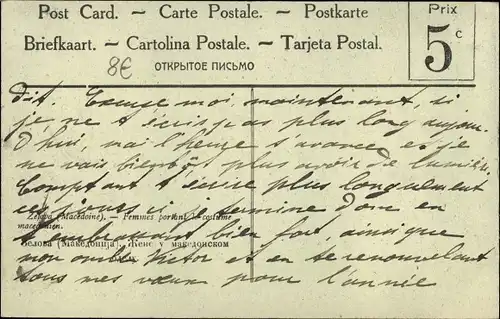 Post Card. — Carte Postale. — Postkarte
Briefkaart. — Cartolina Postale. — Tarjeta Postal.
ОТКРЫТОЕ ПИСЬМО
Prix
5 c
8€
dit. Excuse moi, maintenant, si
je ne t'écris pas plus long aujour-
d'hui, mais l'heure s'avance et je
ne vais bientôt plus avoir de lumière.
Comptant t'écrire plus longuement
ces jours ci je termine donc en
(Macedoine). — Femmes portant le costume
macedonien.
t'embrassant bien fort, ainsi que
(Македонија). Жене у македонском
mon Victor et en te renouvelant
tous mes vœux pour l'année